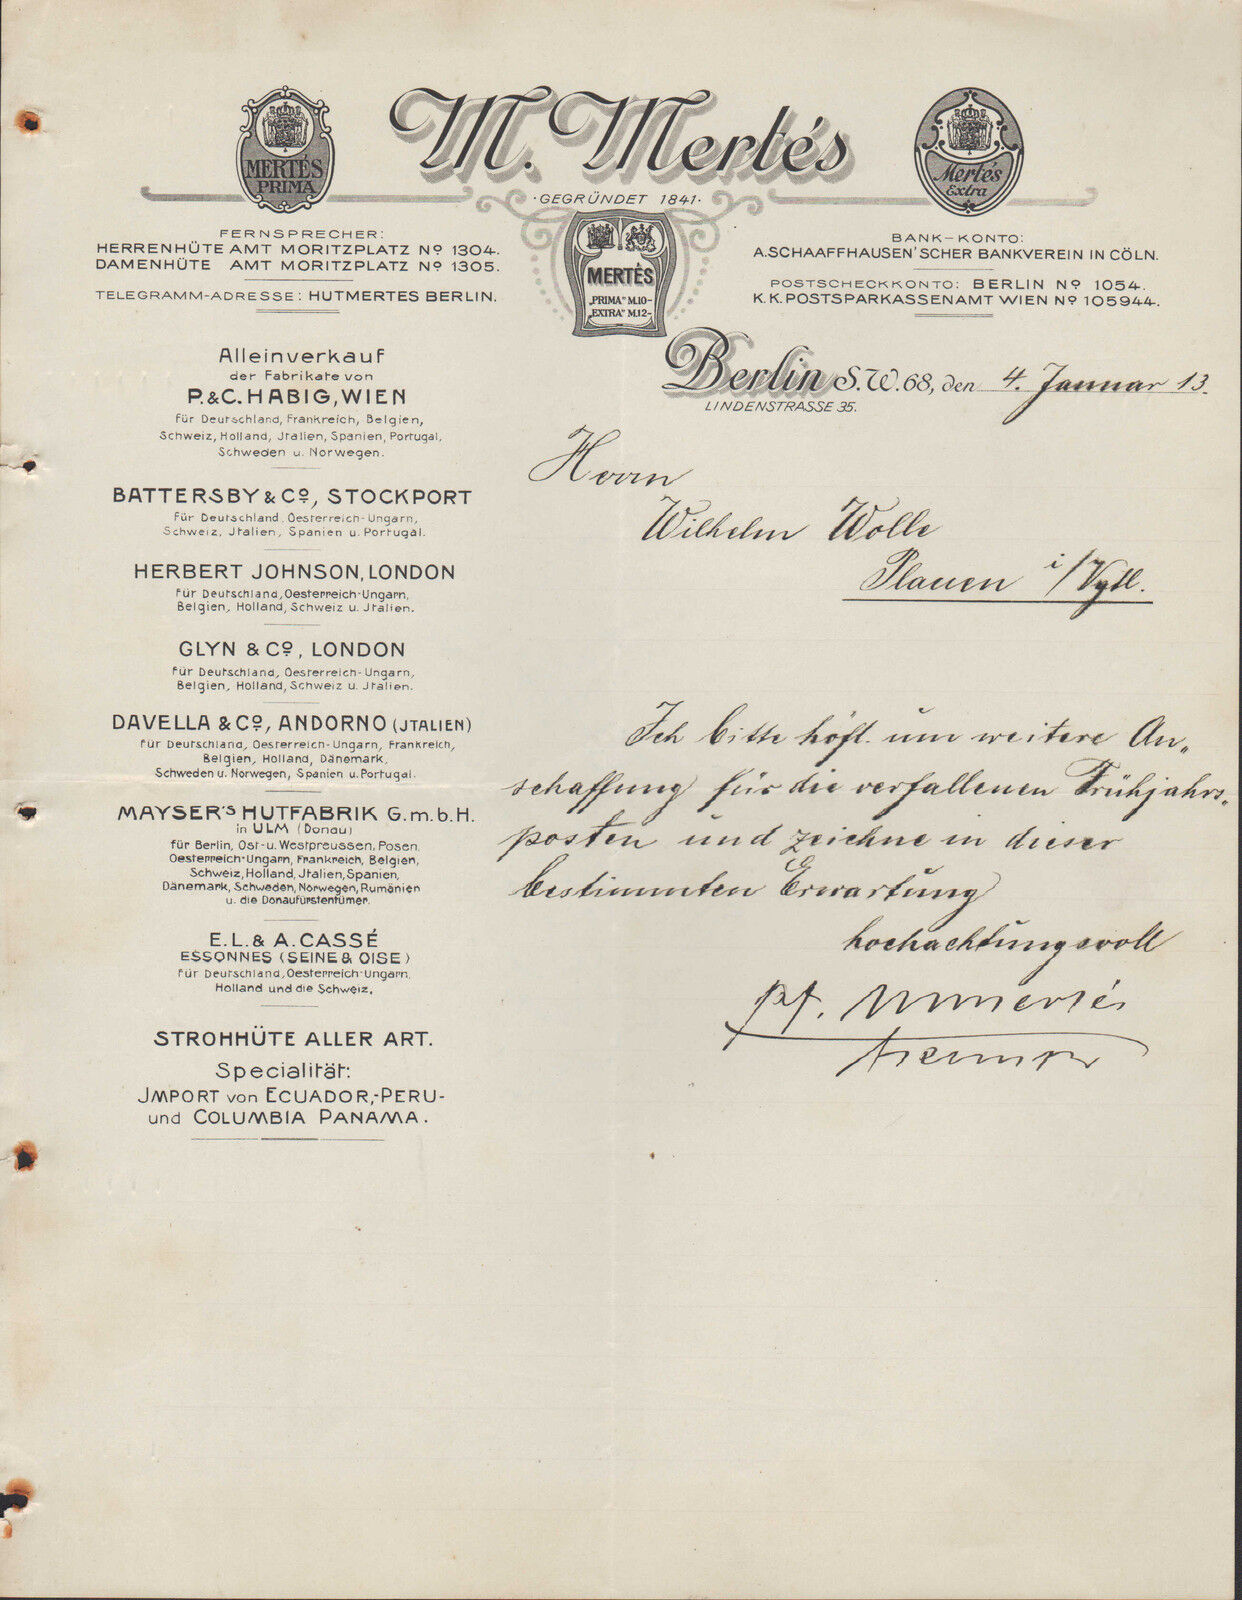 M. Mertés
·GEGRÜNDET 1841·
MERTÉS
PRIMA
Mertés
Extra
MERTÉS
„PRIMA" M.10-
„EXTRA" M.12-
FERNSPRECHER:
HERRENHÜTE AMT MORITZPLATZ No 1304.
DAMENHÜTE AMT MORITZPLATZ No 1305.
TELEGRAMM-ADRESSE: HUTMERTES BERLIN.
BANK-KONTO:
A. SCHAAFFHAUSEN'SCHER BANKVEREIN IN CÖLN.
POSTSCHECKKONTO: BERLIN No 1054.
K.K. POSTSPARKASSENAMT WIEN No 105944.
Berlin S.W. 68, den 4. Januar 13.
LINDENSTRASSE 35.
Alleinverkauf
der Fabrikate von
P. & C. HABIG, WIEN
für Deutschland, Frankreich, Belgien,
Schweiz, Holland, Jtalien, Spanien, Portugal,
Schweden u. Norwegen.
BATTERSBY & Co, STOCKPORT
für Deutschland, Oesterreich-Ungarn,
Schweiz, Jtalien, Spanien u. Portugal.
HERBERT JOHNSON, LONDON
für Deutschland, Oesterreich-Ungarn,
Belgien, Holland, Schweiz u. Jtalien.
GLYN & Co, LONDON
für Deutschland, Oesterreich-Ungarn,
Belgien, Holland, Schweiz u. Jtalien.
DAVELLA & Co, ANDORNO (JTALIEN)
für Deutschland, Oesterreich-Ungarn, Frankreich,
Belgien, Holland, Dänemark,
Schweden u. Norwegen, Spanien u. Portugal.
MAYSER'S HUTFABRIK G.m.b.H.
in ULM (Donau)
für Berlin, Ost- u. Westpreussen, Posen,
Oesterreich-Ungarn, Frankreich, Belgien,
Schweiz, Holland, Jtalien, Spanien,
Dänemark, Schweden, Norwegen, Rumänien
u. die Donaufürstentümer.
E.L. & A. CASSÉ
ESSONNES (SEINE & OISE)
für Deutschland, Oesterreich-Ungarn,
Holland und die Schweiz.
STROHHÜTE ALLER ART.
Specialität:
JMPORT von ECUADOR,-PERU-
und COLUMBIA PANAMA.
Herrn
Wilhelm Wolle
Plauen i/Vgtl.
Ich bitte höfl. um weitere An„
schaffung für die verfallenen Frühjahrs„
posten und zeichne in dieser
bestimmten Erwartung
hochachtungsvoll
pp. M Mertés